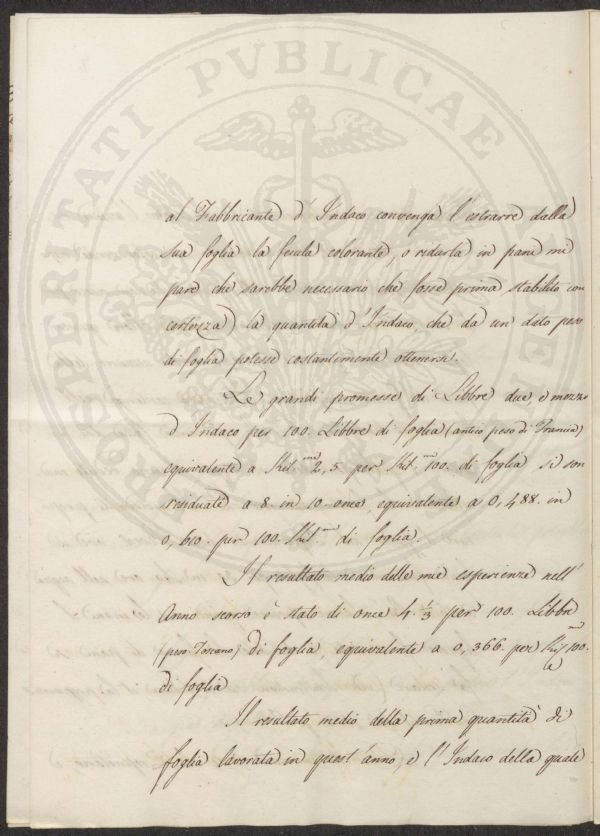 al Fabbricante d'Indaco convenga l'estrarre dalla
sua foglia la fecula colorante, o ridurla in pane mi
pare che sarebbe necessario che fosse prima stabilito con
certezza la quantità d'Indaco, che da un dato peso
di foglia potesse costantemente ottenersi.
Le grandi promesse di Libbre due, e mezzo
d'Indaco per 100. Libbre di foglia (antico peso di Francia)
equivalente a Kil.mi 2,5 per Kil.mi 100. di foglia si son
residuate a 8. in 10. once, equivalente a 0,488. in
0,610. per 100. Kil.mi di foglia.
Il resultato medio delle mie esperienze nell'
Anno scorso è stato di once 4. 1/3 per 100. Libbre
(peso Toscano) di foglia, equivalente a 0,366. per Kil.mi 100.
di foglia
Il resultato medio della prima quantità di
foglia lavorata in quest'anno, e l'Indaco della quale
PROSPERITATI PVBLICAE